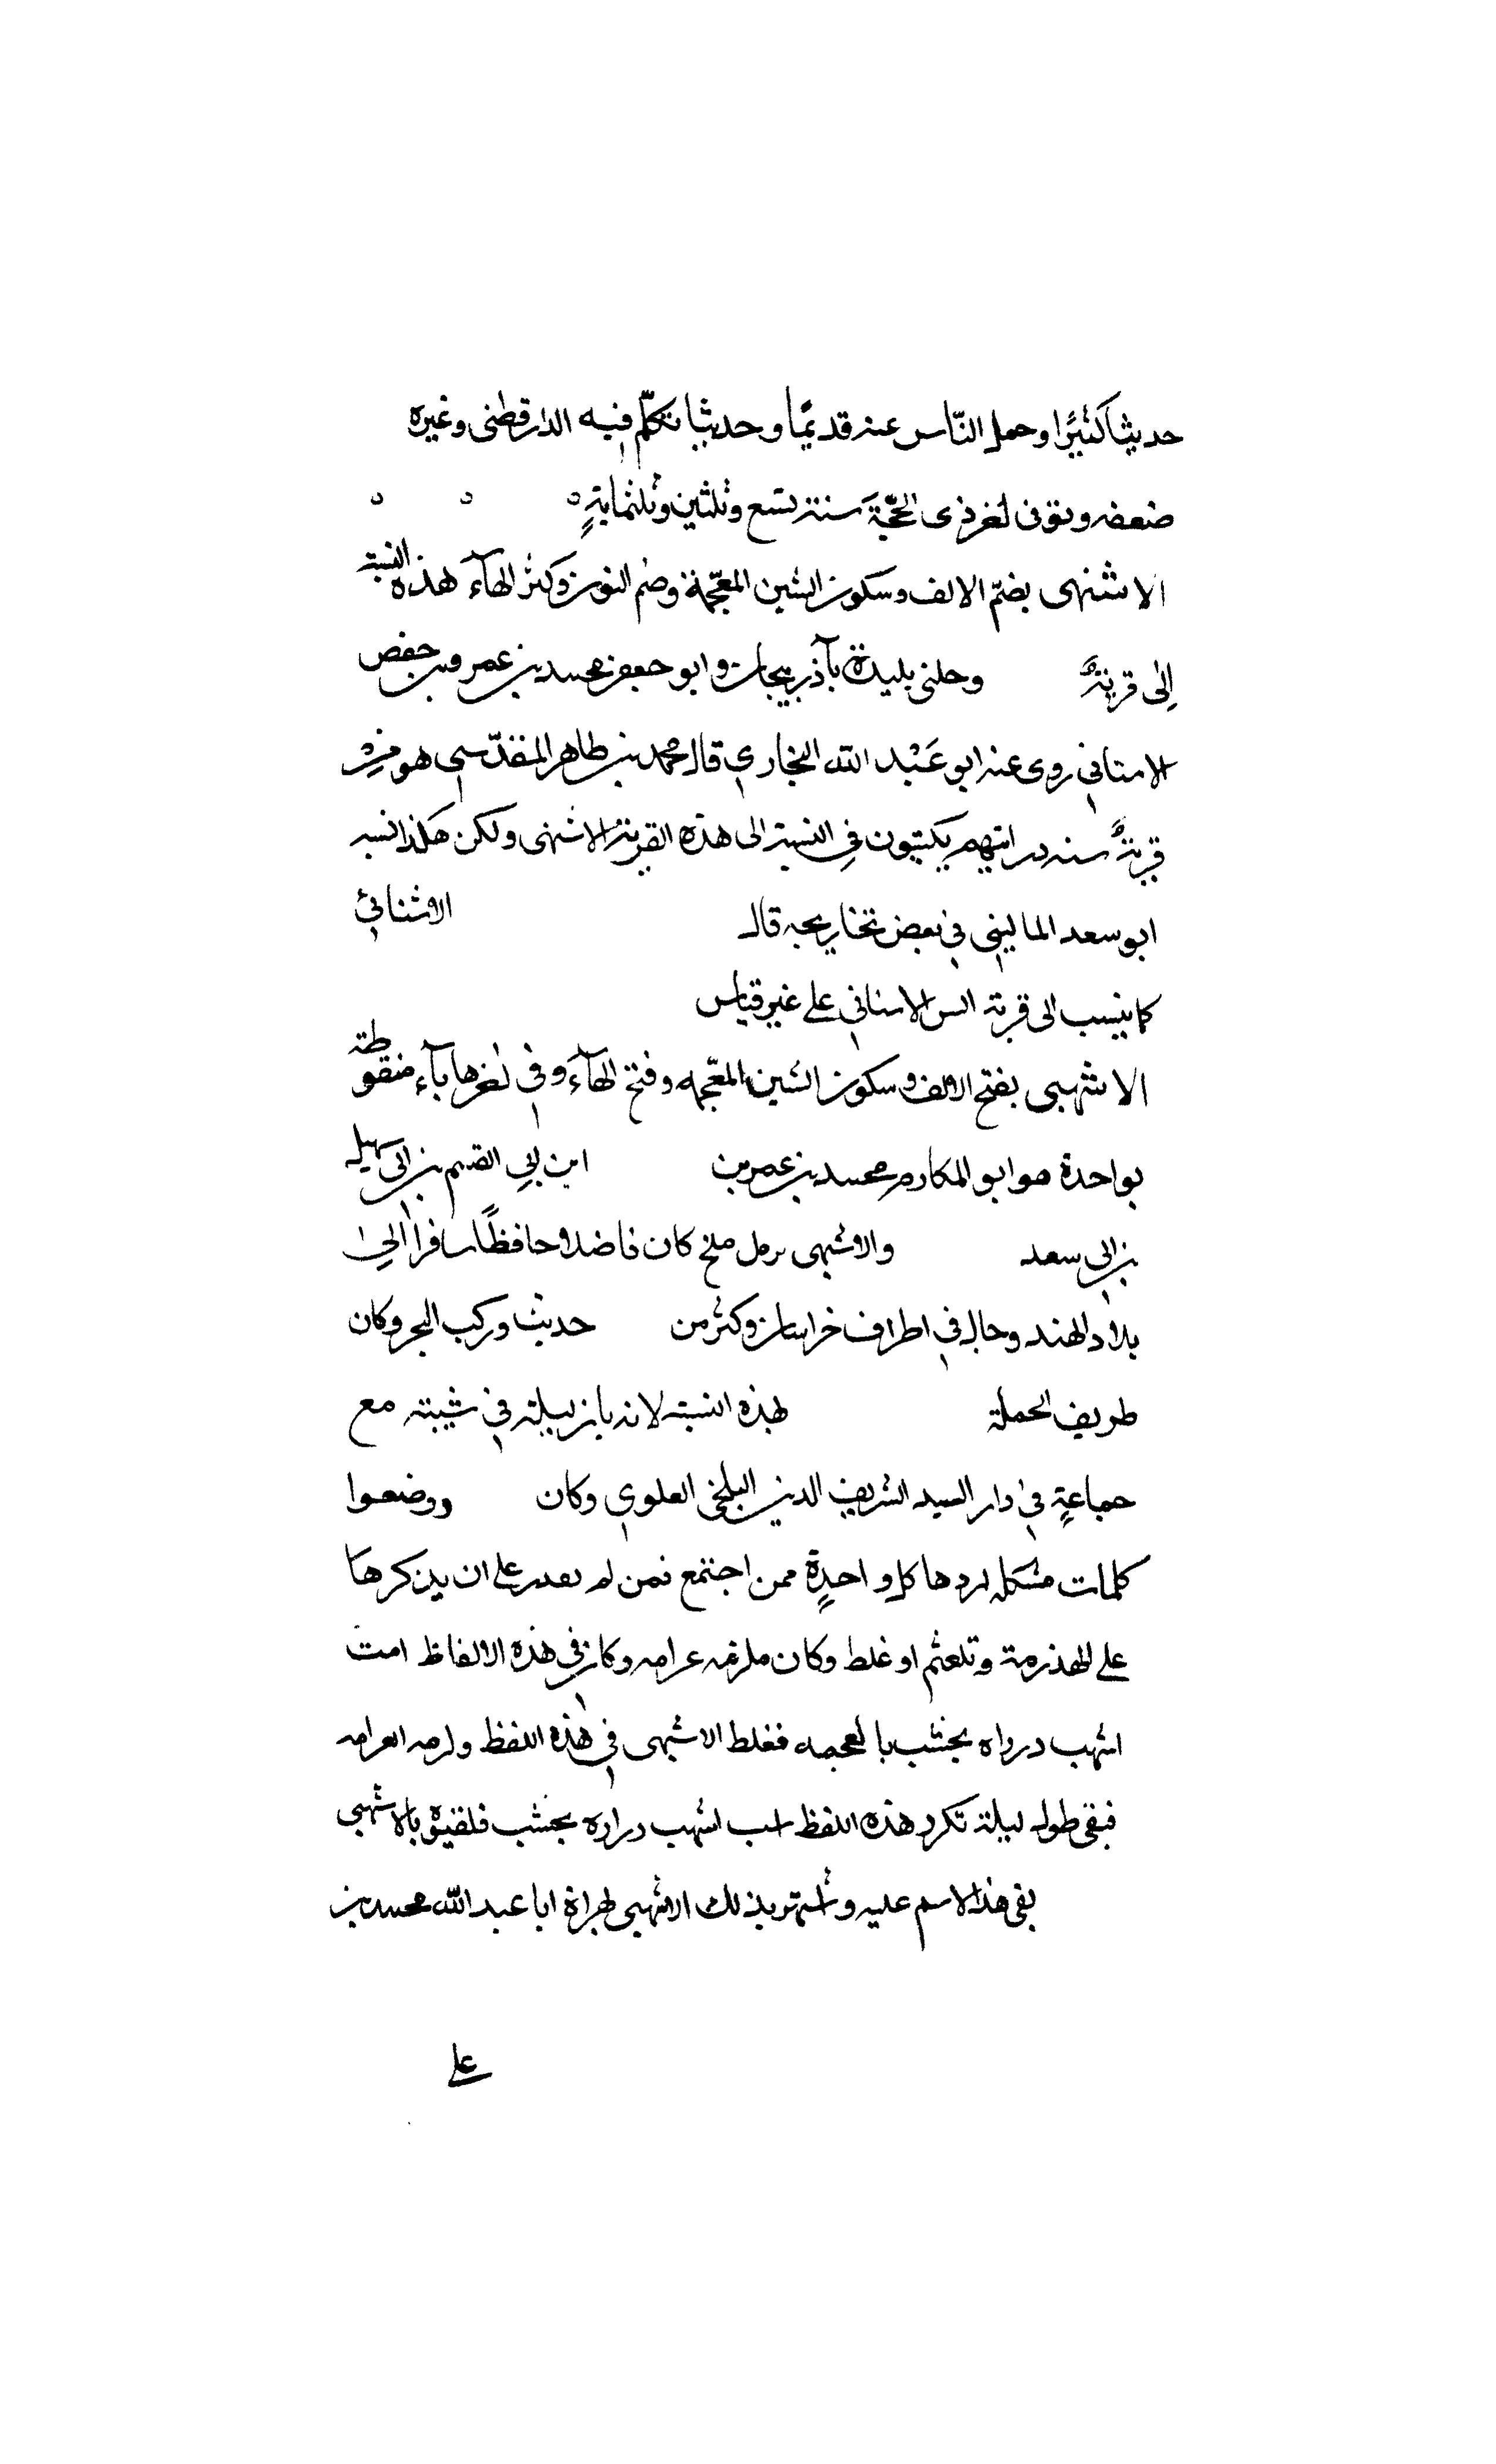 حديثا كثيرًا وحمل النّاس عنه قديمًا وحديثا تكلّم فيه الدارقطنى وغيره
ضعفه وتوفى لغر ذى الحجّة سنة تسع وثلثين وثلثماية
الاشنهى بضمّ الالف وسكون الشين المعجمة وضم النون وكسر الهآء هذه النسبة
إلى قرية وحلنى بليدة بآذربيجان وابو جعفر محمد بن عمرو بن حفص
الاستانى روى عنه ابو عَبْد الله البخارى قال محمد بن طاهر المقدّسى هو من
قرية سنه درايتهم يكتبون فى النسبة الى هذه القرية الاشنهى ولكن هكذا نسبه
ابو سعد المالينى فى بعض تخاريجه قال الاشنانى
كما ينسب الى قرية الس الاسنانى على غير قياس
الاشهبى بفتح الالف وسكون الشين المعجمه وفتح الهآء وفى لغرها بآء منقوطة
بواحدة هو ابو المكارم محمد بن عمر بن ابن ابى القسم بن ابى سهل
بن ابى سعد والاشهبى من اهل بلخ كان فاضلا وحافظًا سافر الى
بلاد الهند وجال فى اطراف خراسان وكثر من حديث وركب البحر وكان
طريف الحملة لهذه النسبة لانه بات ليلة فى شيبته مع
جماعةٍ فى دار السيد الشريف الدين البلخى العلوى وكان ووضعوا
كلمات مشكله لردها كل واحدةٍ ممن اجتمع فمن لم يقدر على ان يذكرها
على الهذرمة وتلعثم او غلط وكان ملزمه غرامه وكان فى هذه الالفاظ امت
اشهب درواه بخشب بالعجمه فغلط الاشهبى فى هذه اللفظ ولزمه الغرامه
فبقى طول ليلة تكرر هذه اللفظ اسب اشهب دراره بخشب فلقبوه بالاشهبى
بقى هذا الاسم عليه واشتهر بذلك الاشهبى لهراة ابا عبد الله محمد بن
على